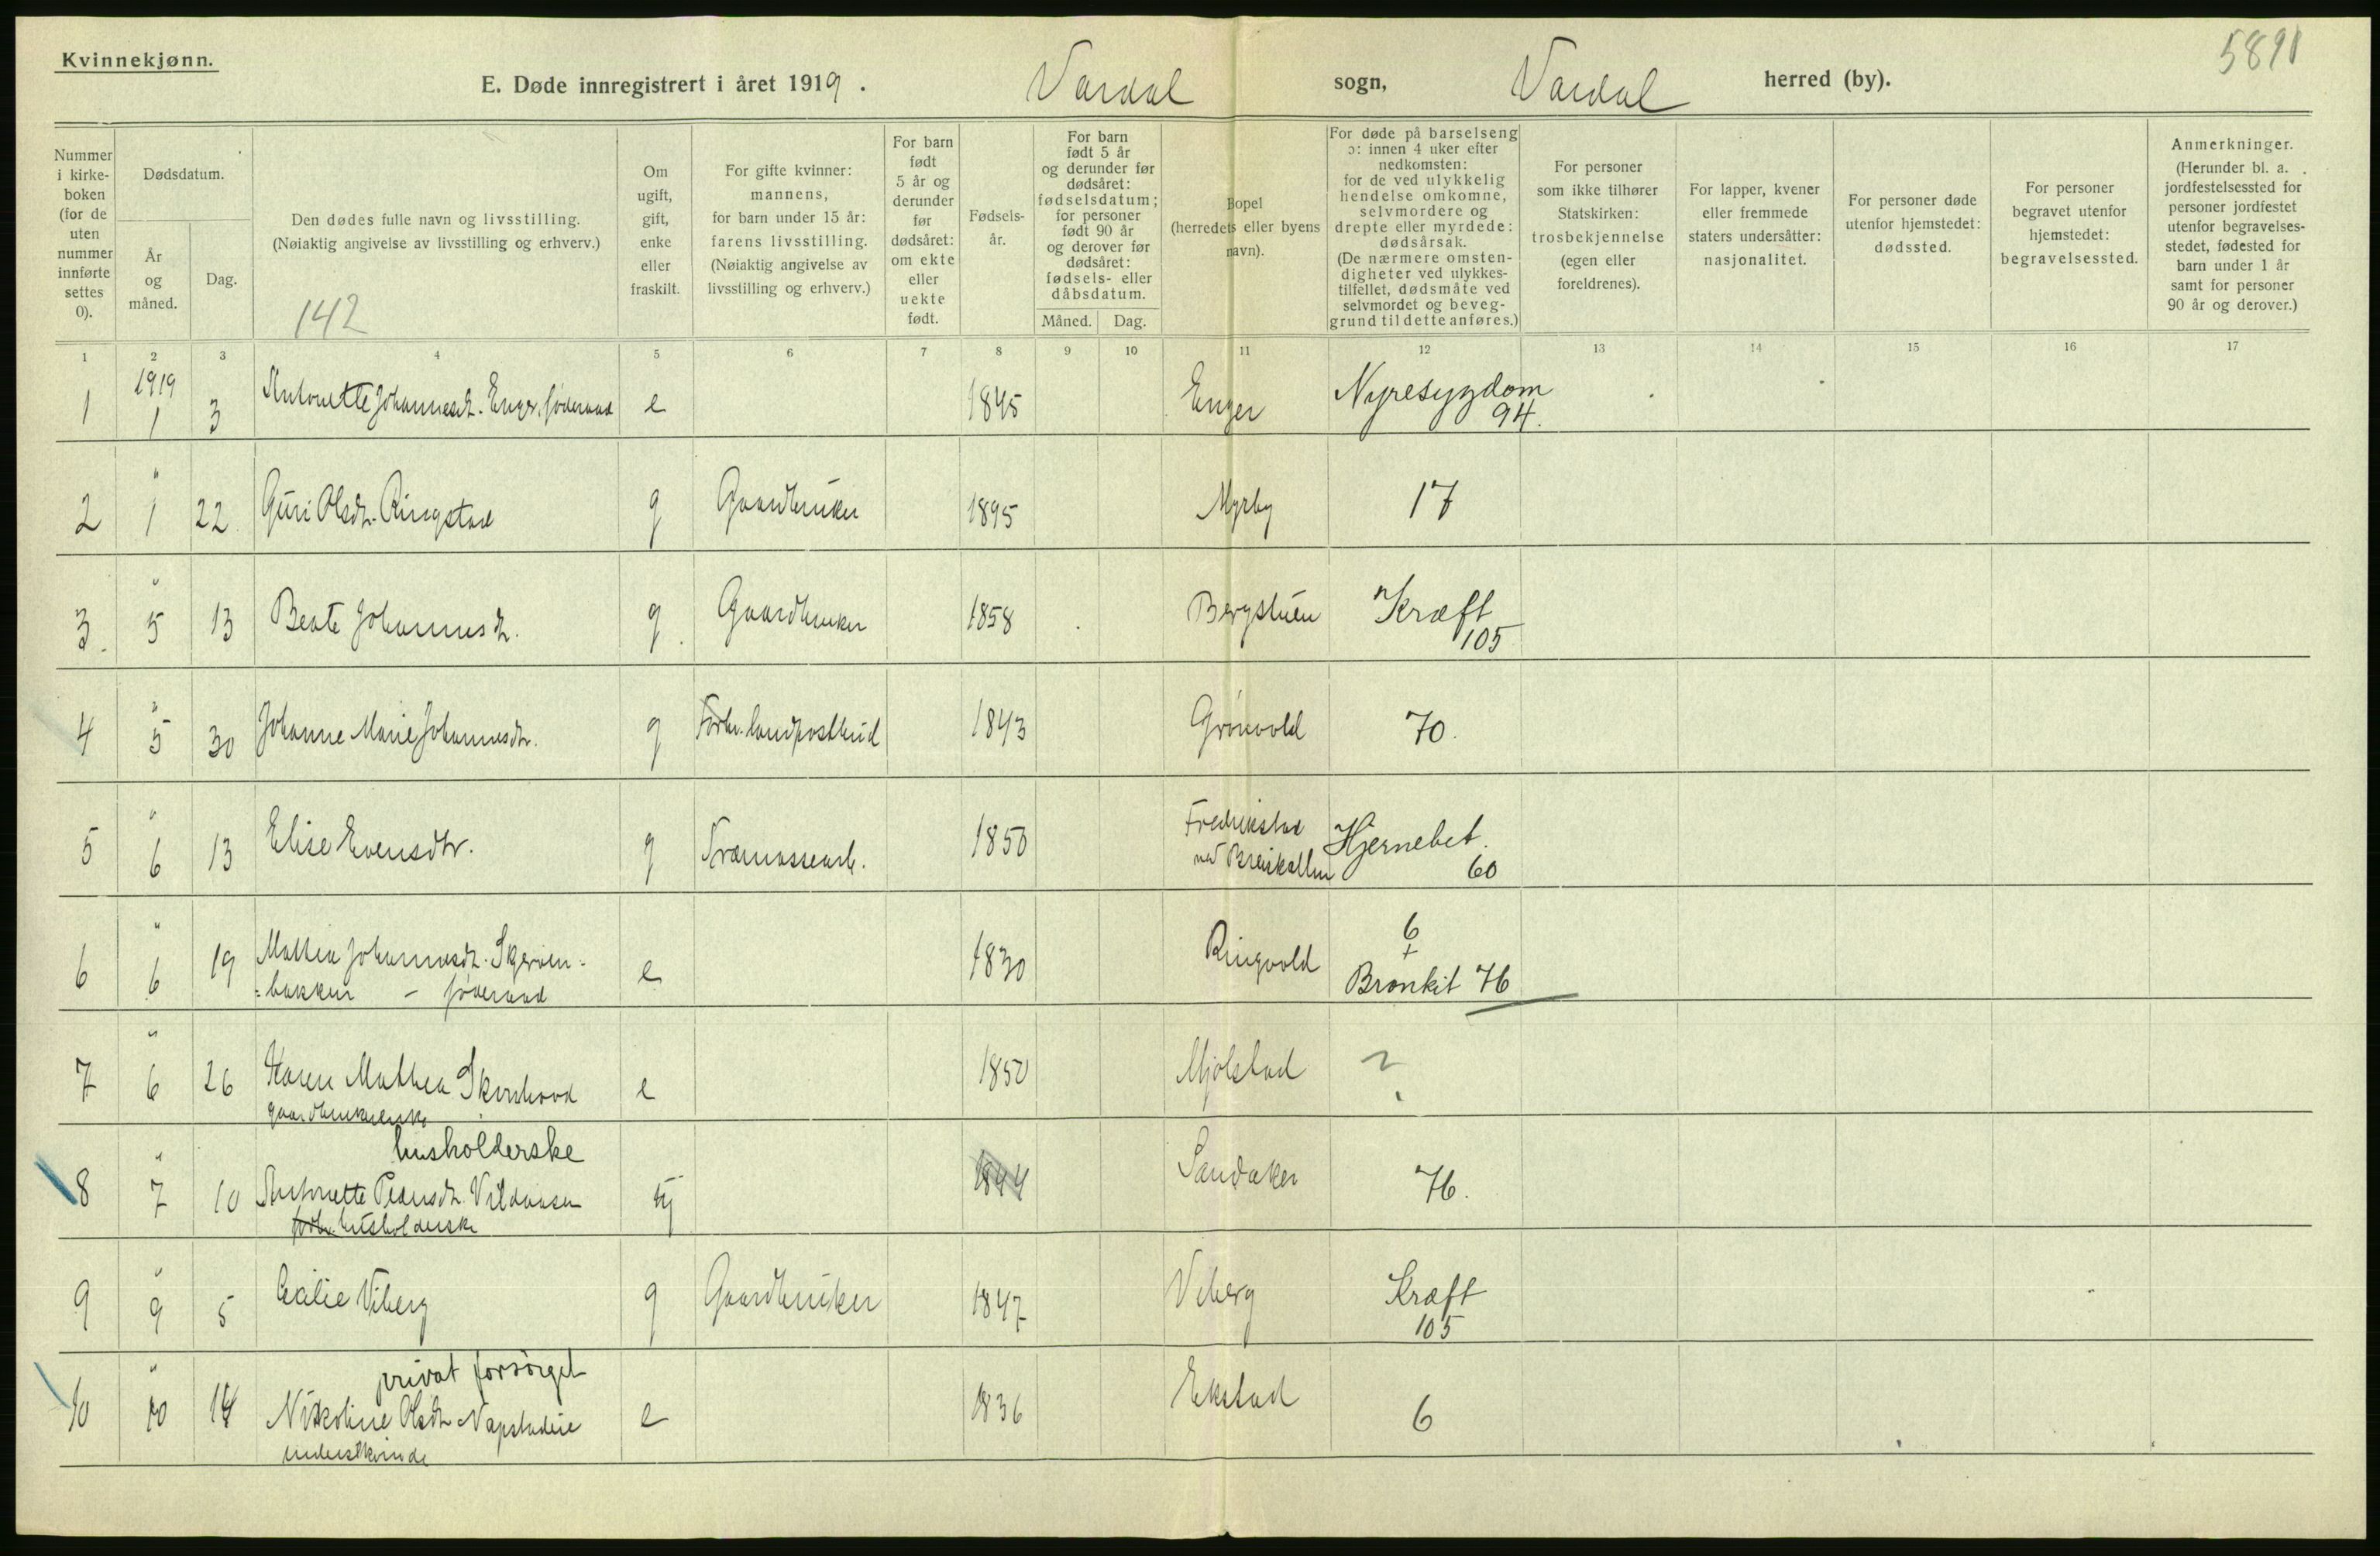 Kvinnekjønn.
5891
E. Døde innregistrert i året 1919. Vardal sogn, Vardal herred (by).
Nummer i kirkeboken (for de uten nummer innførte settes 0).
Dødsdatum.
År og måned.
Dag.
Den dødes fulle navn og livsstilling.
(Nøiaktig angivelse av livsstilling og erhverv.)
142
Om ugift, gift, enke eller fraskilt.
For gifte kvinner: mannens, for barn under 15 år: farens livsstilling. (Nøiaktig angivelse av livsstilling og erhverv.)
For barn født 5 år og derunder før dødsåret: om ekte eller uekte født.
Fødsels-år.
For barn født 5 år og derunder før dødsåret: fødselsdatum; for personer født 90 år og derover før dødsåret: fødsels- eller dåbsdatum.
Måned. Dag.
Bopel (herredets eller byens navn).
For døde på barselseng ɔ: innen 4 uker efter nedkomsten: for de ved ulykkelig hendelse omkomne, selvmordere og drepte eller myrdede: dødsårsak. (De nærmere omsten-digheter ved ulykkes-tilfellet, dødsmåte ved selvmordet og beveg-grund til dette anføres.)
For personer som ikke tilhører Statskirken: trosbekjennelse (egen eller foreldrenes).
For lapper, kvener eller fremmede staters undersåtter: nasjonalitet.
For personer døde utenfor hjemstedet: dødssted.
For personer begravet utenfor hjemstedet: begravelsessted.
Anmerkninger. (Herunder bl. a. jordfestelsessted for personer jordfestet utenfor begravelses-stedet, fødested for barn under 1 år samt for personer 90 år og derover.)
1 2 3 4 5 6 7 8 9 10 11 12 13 14 15 16 17
1919
1 1 3 Antonette Johannesdt. Enger, føderaad e 1845 Enger Nyresygdom
94.
2 " 1 22 Guri Olsdt. Ringstad g Gaardbruker 1895 Myrby 17
3. " 5 13 Beate Johannesdt. g. Gaardbruker 1858 Bergstuen Kræft
105
4 " 5 30 Johanne Marie Johannesdtr. g Forhv. landpostbud 1843 Grönvold 70.
5 " 6 13 Elise Evensdtr. g Træmassearb. 1850 Fredrikstad
ved Breiskallen
Hjernebet.
60
6 " 6 19 Mathea Johannesdt. Skjerven-
=bakken - føderaad e 1830 Ringvold 6
+
Bronkit 76
7 " 6 26 Karen Mathea
gaardbrukerenke e 1850 Mjölstad ?
husholderske
8 " 7 10 Antonette Pedersdt. Vildaasen
forhv. husholderske uj 1844 Sandaker 76.
9 " 9 5 Cecilie Viberg g Gaardbruker 1847 Viberg Kræft
105
privat forsørget
10 " 10 14 Nikoline Olsdt
understkvinde e 1836 Ekstad 6